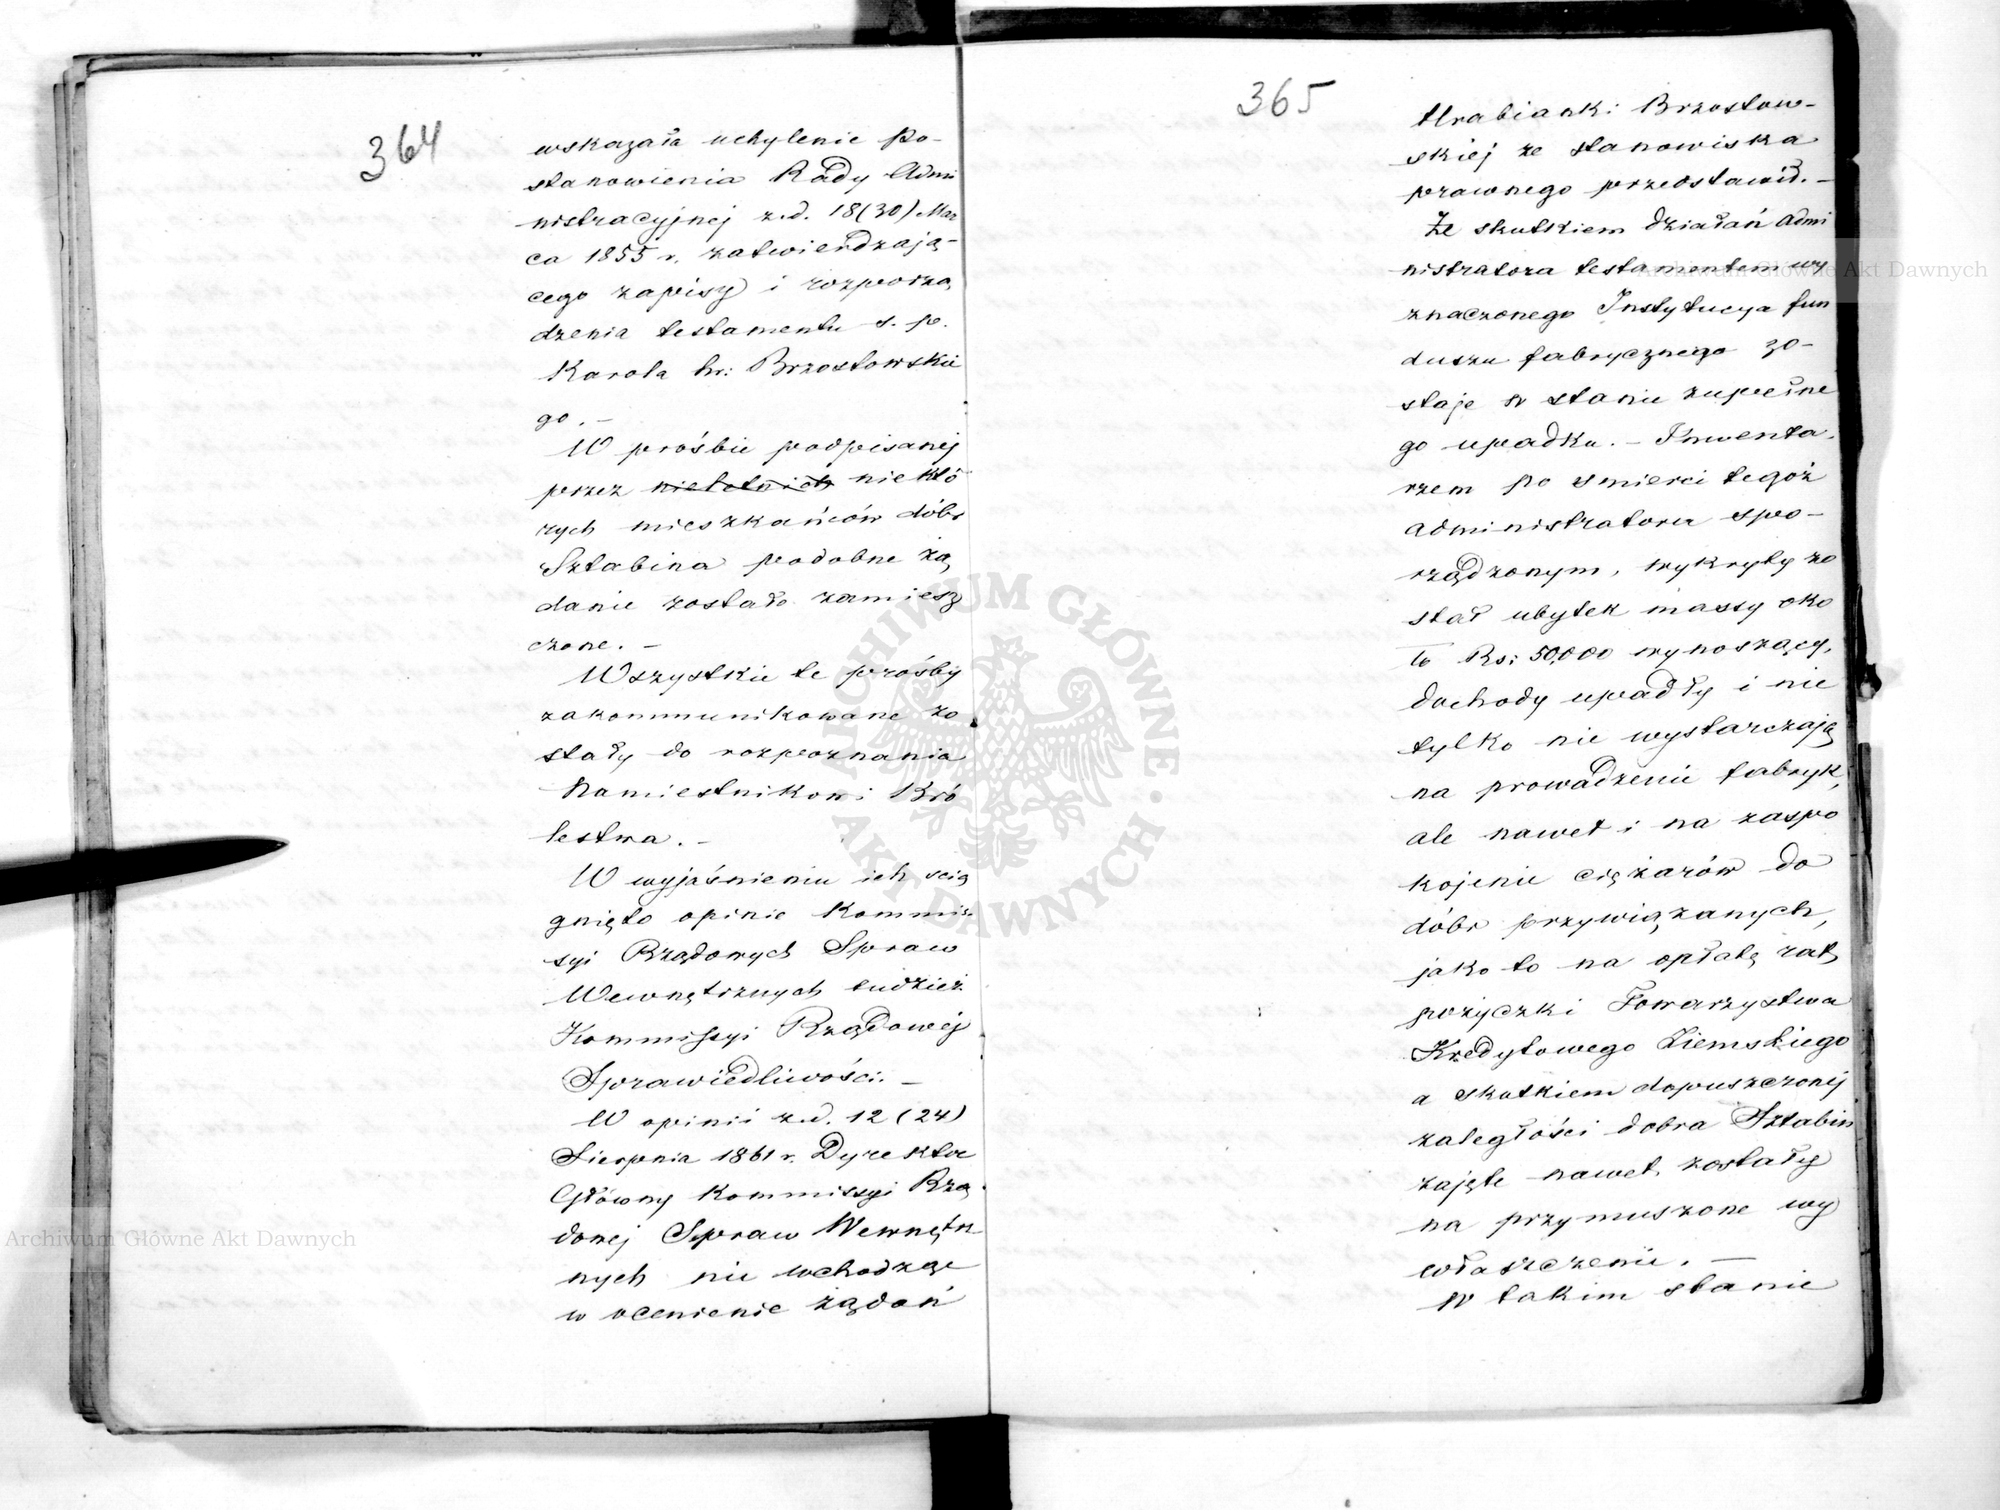 364
wskazała uchylenie po-
stanowienia Rady Admi
nistracyjnej z d. 18 (30) Mar
ca 1855 r. zatwierdzają-
cego zapisy i rozporzą
dzenia testamentu s. p.
Karola hr: Brzostowskie
go. –
W prośbie podpisanej
przez niektórych niektó
rych mieszkańców dóbr
Sztabina podobne żą
danie zostało zamiesz
czone. –
Wszystkie te prośby
zakommunikowane zo
stały do rozpoznania
Namiestnikowi Kró
lestwa. –
W wyjaśnieniu ich ścią
gnięto opinie Kommis
syi Rządowych Spraw
Wewnętrznych tudzież
Kommissyi Rządowéj
Sprawiedliwości. –
W opinii z d. 12 (24)
Sierpnia 1861 r. Dyrektor
Główny Kommissyi Rzą
dowej Spraw Wewnętrz
nych nie wchodząc
w ocenienie żądań
365
Hrabianki Brzostow-
skiej ze stanowiska
prawnego przedstawił. –
Że skutkiem działań Admi
nistratora testamentem wy
znaczonego Instytucya fun
duszu fabrycznego zo-
staje w stanie zupełne
go upadku. – Inwenta
rzem po śmierci tegóż
administratora spo-
rządzonym, wykryty zo
stał ubytek massy oko
ło Rs: 50,000 wynoszący,
dochody upadły i nie
tylko nie wystarczają
na prowadzenie fabryk,
ale nawet i na zaspo
kojenie ciężarów do
dóbr przywiązanych,
jako to na opłatę rat
pożyczki Towarzystwa
Kredytowego Ziemskiego
a skutkiem dopuszczonej
zaległości dobra Sztabin
zajęte nawet zostały
na przymuszone wy
właszczenie. –
W takim stanie
Archiwum Główne Akt Dawnych
Archiwum Główne Akt Dawnych
ARCHIWUM GŁÓWNE AKT DAWNYCH